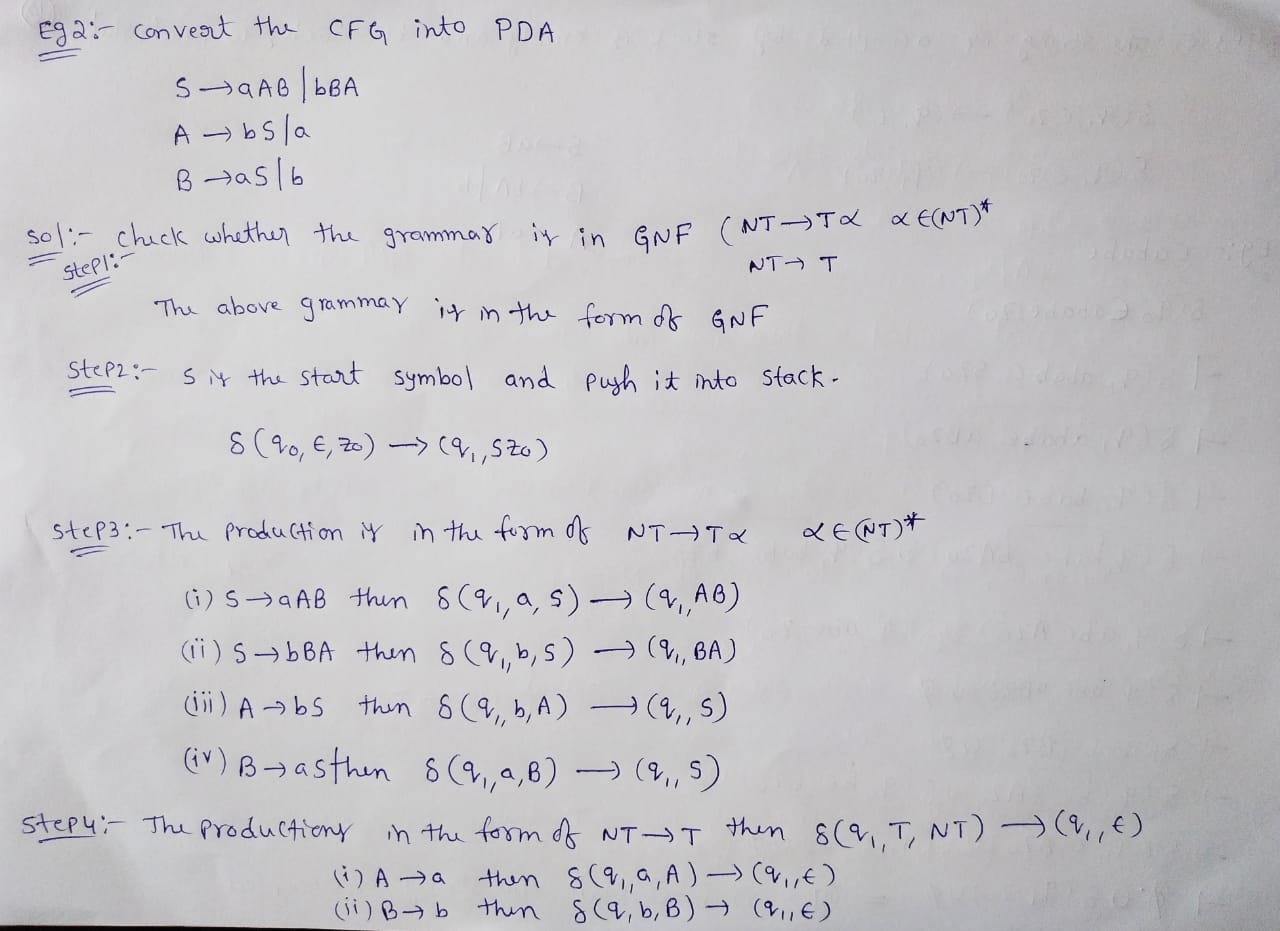 Eg2:- Convert the CFG into PDA
S → aAB | bBA
A → bS/a
B → aS/b
Sol:- Check whether the grammar is in GNF (NT → Tα α ∈ (NT)*
Step1:- NT → T
The above grammar is in the form of GNF
Step2:- S is the start symbol and push it into stack.
δ(q₀, ϵ, z₀) → (q₁, Sz₀)
Step3:- The production is in the form of NT → Tα α ∈ (NT)*
(i) S → aAB then δ(q₁, a, S) → (q₁, AB)
(ii) S → bBA then δ(q₁, b, S) → (q₁, BA)
(iii) A → bS then δ(q₁, b, A) → (q₁, S)
(iv) B → as then δ(q₁, a, B) → (q₁, S)
Step4:- The productions in the form of NT → T then δ(q₁, T, NT) → (q₁, ϵ)
(i) A → a then δ(q₁, a, A) → (q₁, ϵ)
(ii) B → b then δ(q, b, B) → (q₁, ϵ)